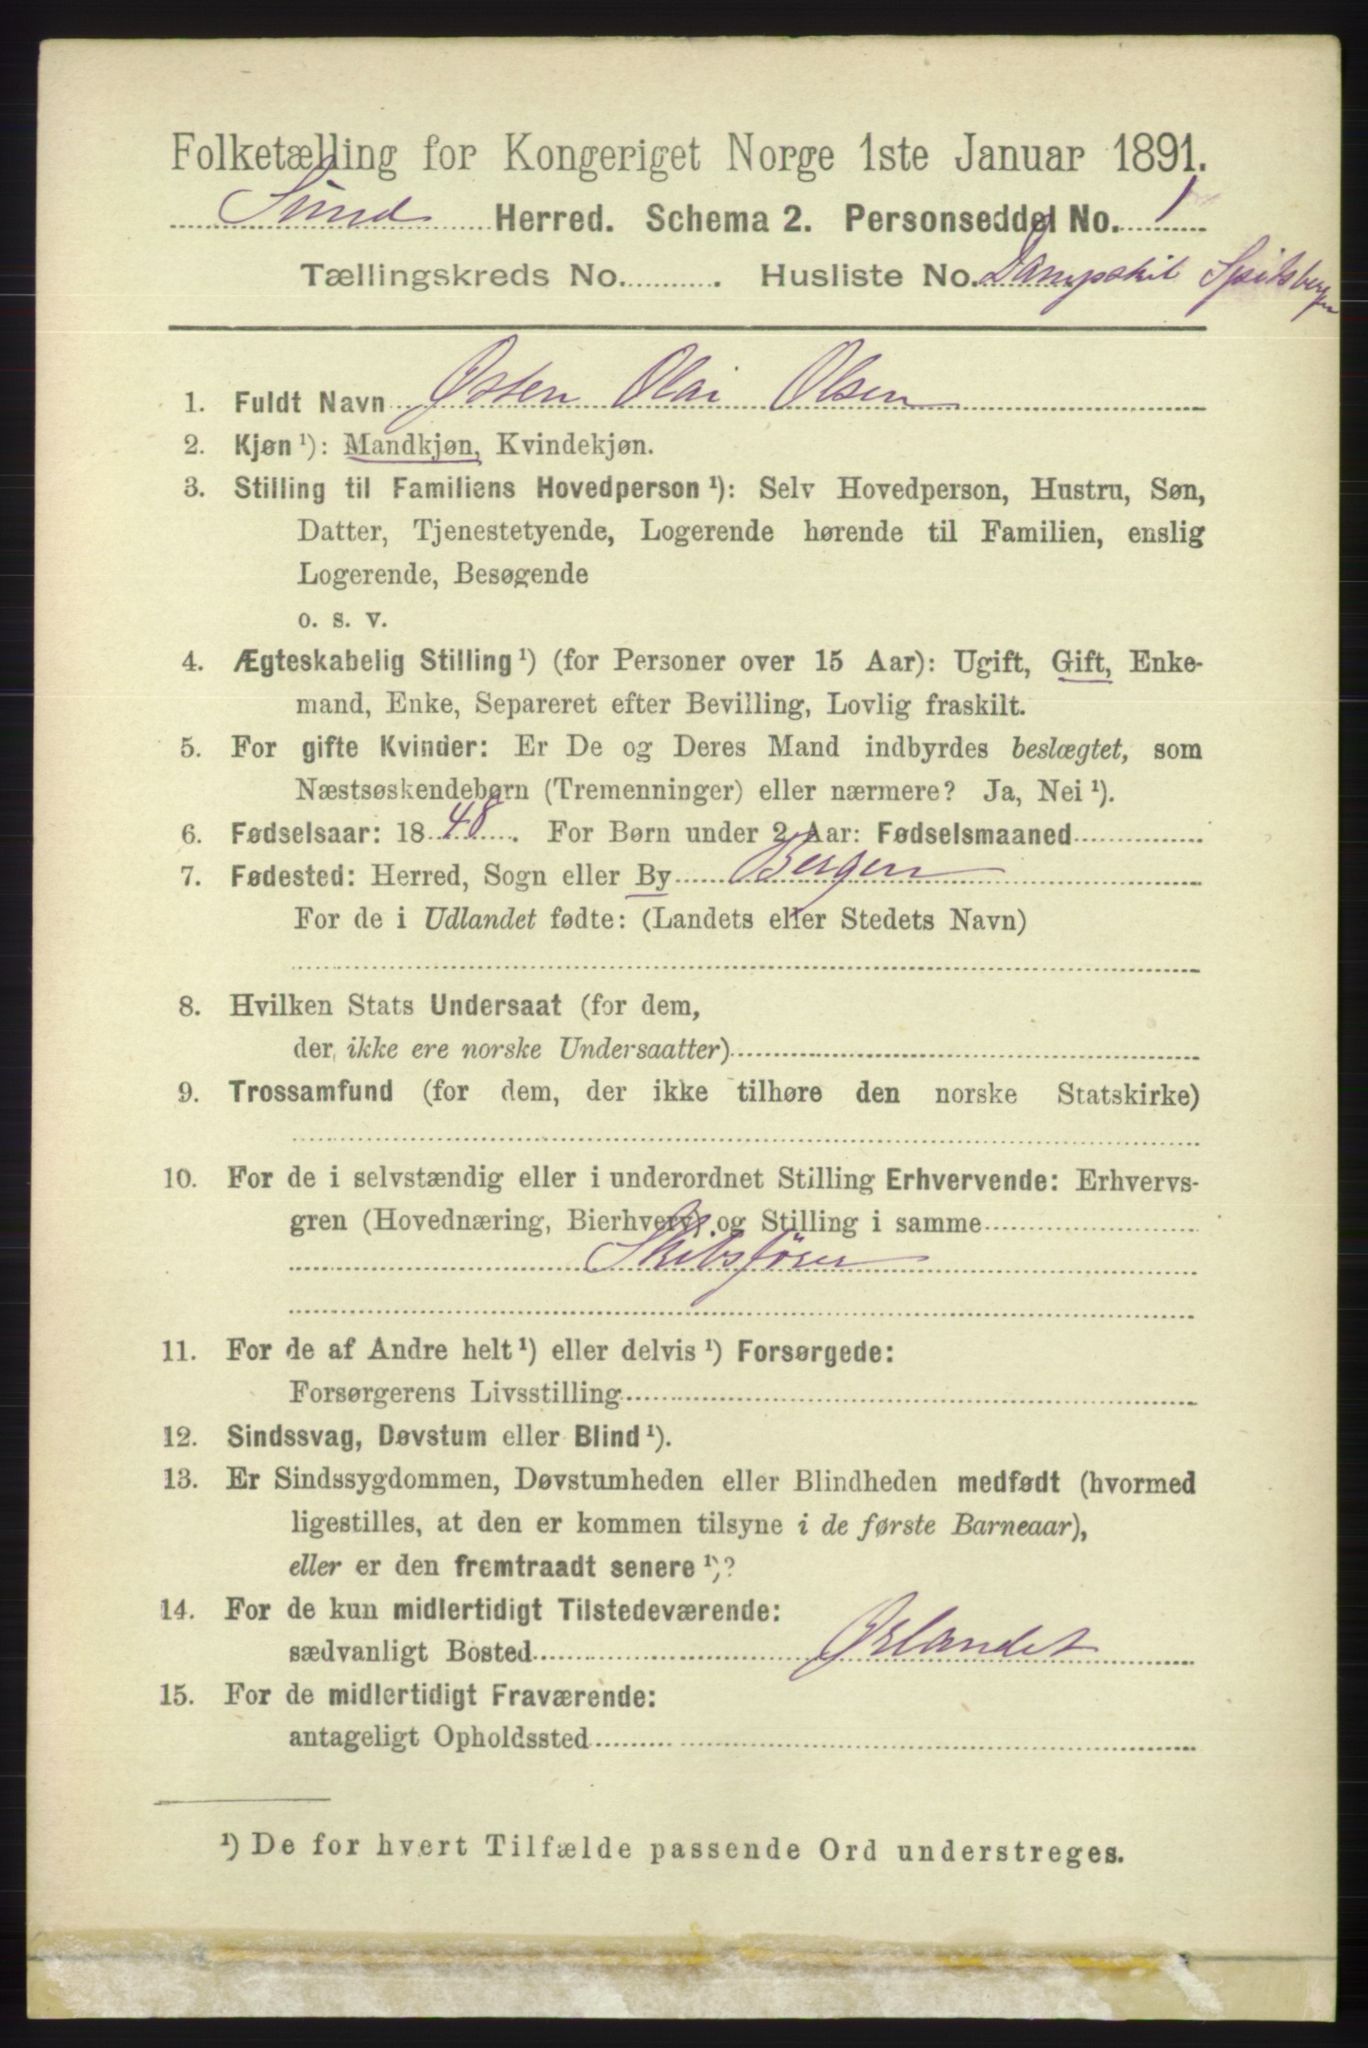 Folketælling for Kongeriget Norge 1ste Januar 1891.
Sund Herred. Schema 2. Personseddel No. 1
Tællingskreds No. . Husliste No. Dampskib Spitsbergen
1. Fuldt Navn Østen Olai Olsen
2. Kjøn ¹): Mandkjøn, Kvindekjøn.
3. Stilling til Familiens Hovedperson ¹): Selv Hovedperson, Hustru, Søn,
Datter, Tjenestetyende, Logerende hørende til Familien, enslig
Logerende, Besøgende
o. s. v.
4. Ægteskabelig Stilling ¹) (for Personer over 15 Aar): Ugift, Gift, Enke-
mand, Enke, Separeret efter Bevilling, Lovlig fraskilt.
5. For gifte Kvinder: Er De og Deres Mand indbyrdes beslægtet, som
Næstsøskendebørn (Tremenninger) eller nærmere? Ja, Nei ¹).
6. Fødselsaar: 1848. For Børn under 2 Aar: Fødselsmaaned
7. Fødested: Herred, Sogn eller By Bergen
For de i Udlandet fødte: (Landets eller Stedets Navn)
8. Hvilken Stats Undersaat (for dem,
der ikke ere norske Undersaatter)
9. Trossamfund (for dem, der ikke tilhøre den norske Statskirke)
10. For de i selvstændig eller i underordnet Stilling Erhvervende: Erhvervs-
gren (Hovednæring, Bierhverv) og Stilling i samme
Skibsfører
11. For de af Andre helt ¹) eller delvis ¹) Forsørgede:
Forsørgerens Livsstilling
12. Sindssvag, Døvstum eller Blind ¹).
13. Er Sindssygdommen, Døvstumheden eller Blindheden medfødt (hvormed
ligestilles, at den er kommen tilsyne i de første Barneaar),
eller er den fremtraadt senere ¹)?
14. For de kun midlertidigt Tilstedeværende:
sædvanligt Bosted Ørlandet
15. For de midlertidigt Fraværende:
antageligt Opholdssted
¹) De for hvert Tilfælde passende Ord understreges.